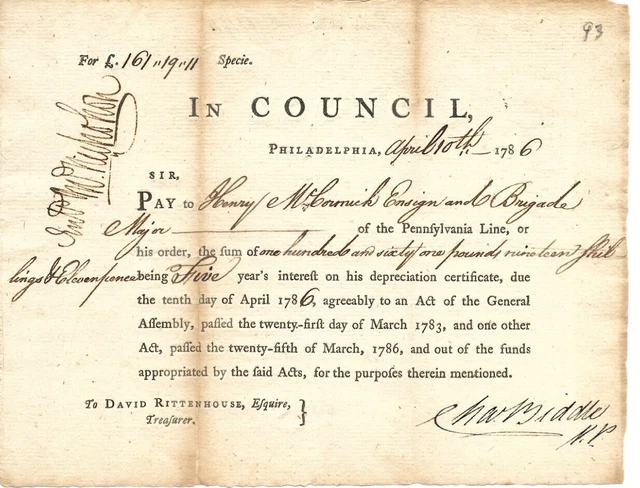 93
For £. 161 " 19 " 11 Specie.
IN COUNCIL,
PHILADELPHIA, April 10th 1786
SIR,
PAY to Henry McCormick Ensign and Brigade
Major of the Pennſylvania Line, or
his order, the ſum of one hundred and sixty one pounds nineteen Shil
lings & Elevenpence being Five year's intereſt on his depreciation certificate, due
the tenth day of April 1786, agreeably to an Act of the General
Aſſembly, paſſed the twenty-firſt day of March 1783, and one other
Act, paſſed the twenty-fifth of March, 1786, and out of the funds
appropriated by the ſaid Acts, for the purpoſes therein mentioned.
To DAVID RITTENHOUSE, Eſquire,
Treaſurer.
Cha. Biddle
V. P.
Jno. Nicholson